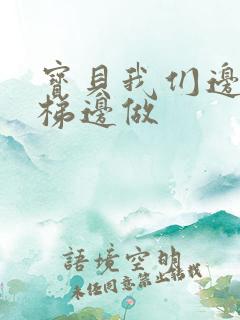 寶貝我们邊
梯邊做
語境空明
未任同意禁止轉載